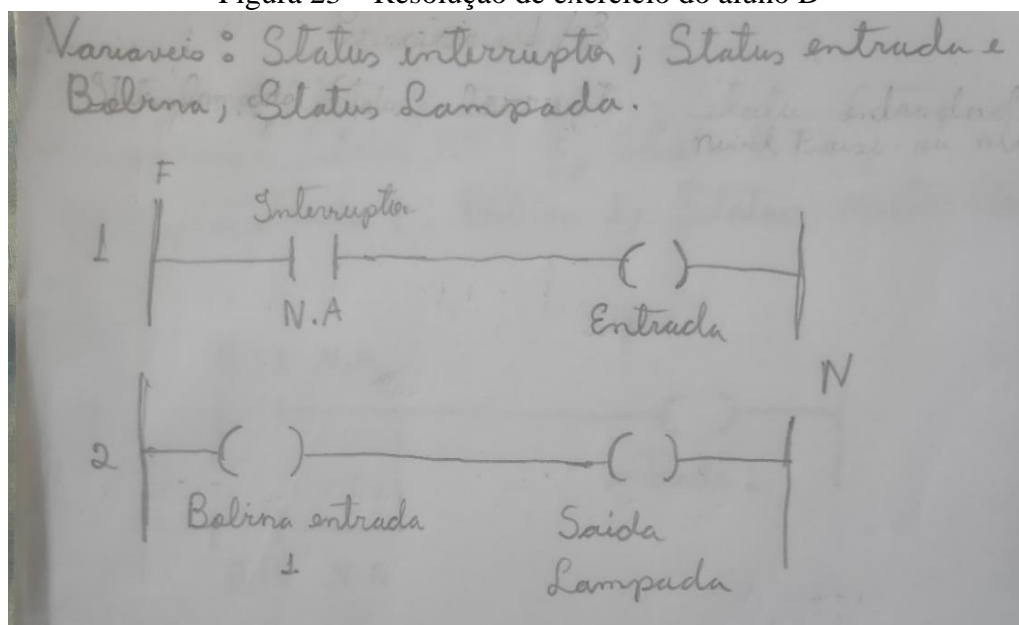 Figura 23 – Resolução de exercício do aluno D
Variaveis: Status interruptor; Status entrada e
Bobina, Status Lampada.
F
Interruptor
1
N.A
Entrada
N
2
Bobina entrada
1
Saida
Lampada